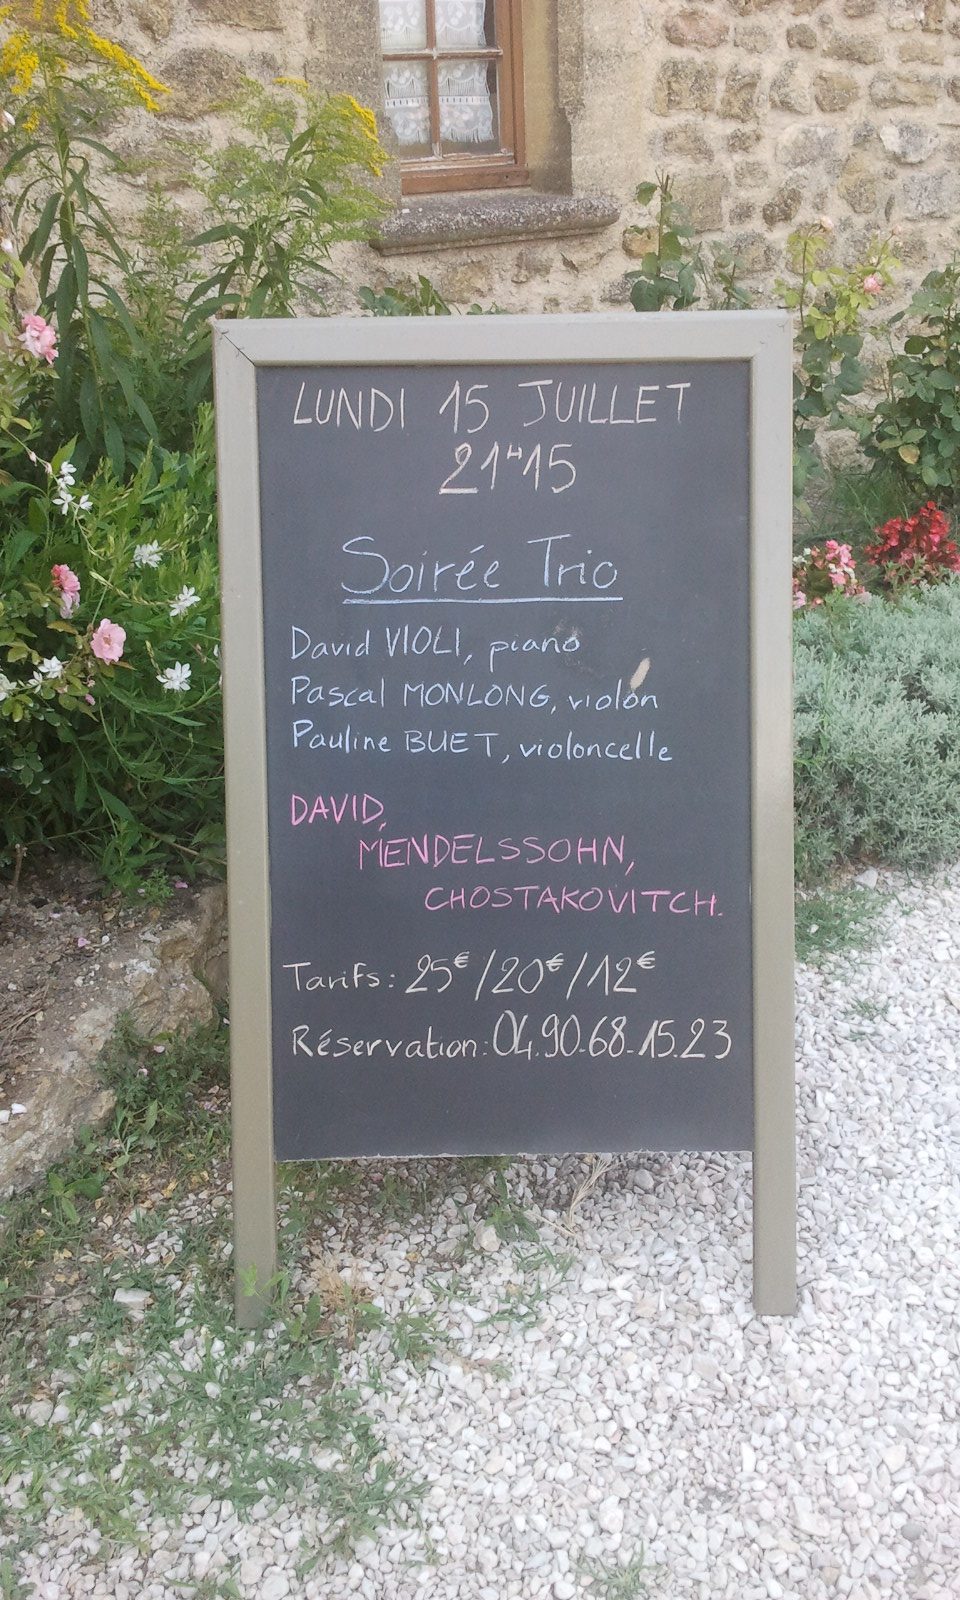 LUNDI 15 JUILLET
21H15
Soirée Trio
David VIOLI, piano
Pascal MONLONG, violon
Pauline BUET, violoncelle
DAVID,
MENDELSSOHN,
CHOSTAKOVITCH.
Tarifs: 25€/20€/12€
Réservation: 04.90.68.15.23